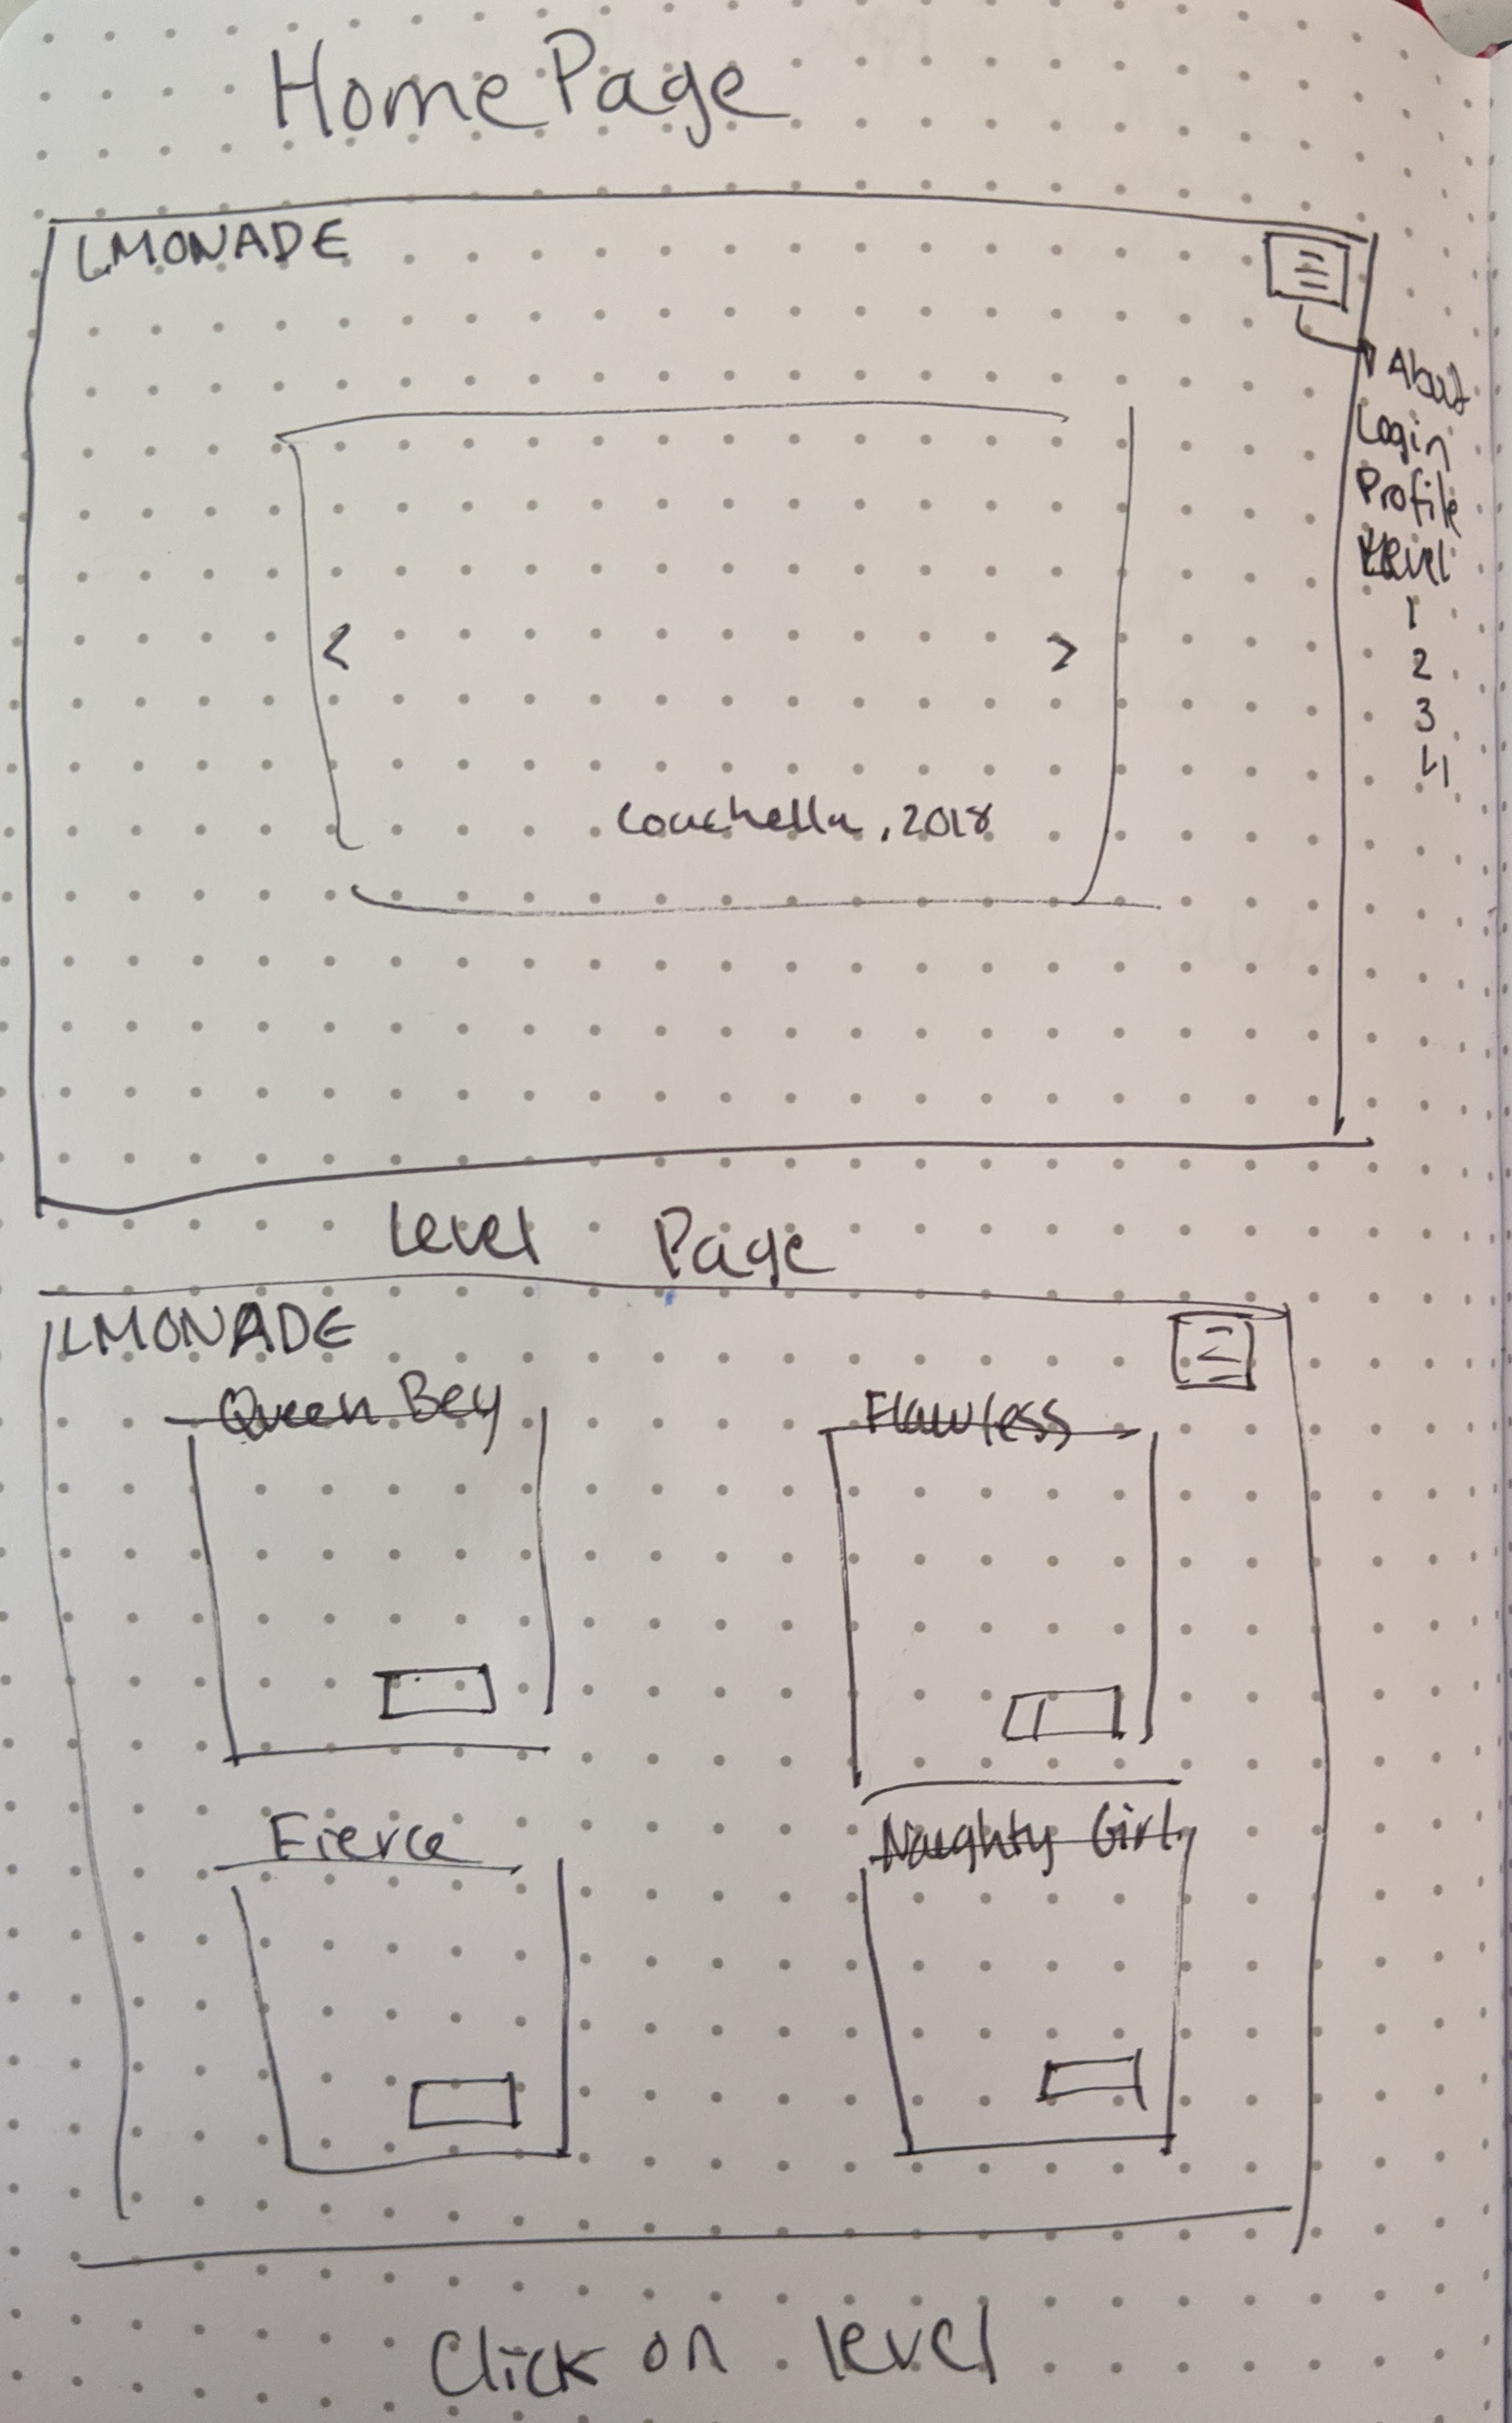 Home Page
LMONADE
About
Login
Profile
Level
1
2
3
4
<
>
Coachella, 2018
Level Page
LMONADE
Queen Bey
Flawless
Fierce
Naughty Girl
Click on level